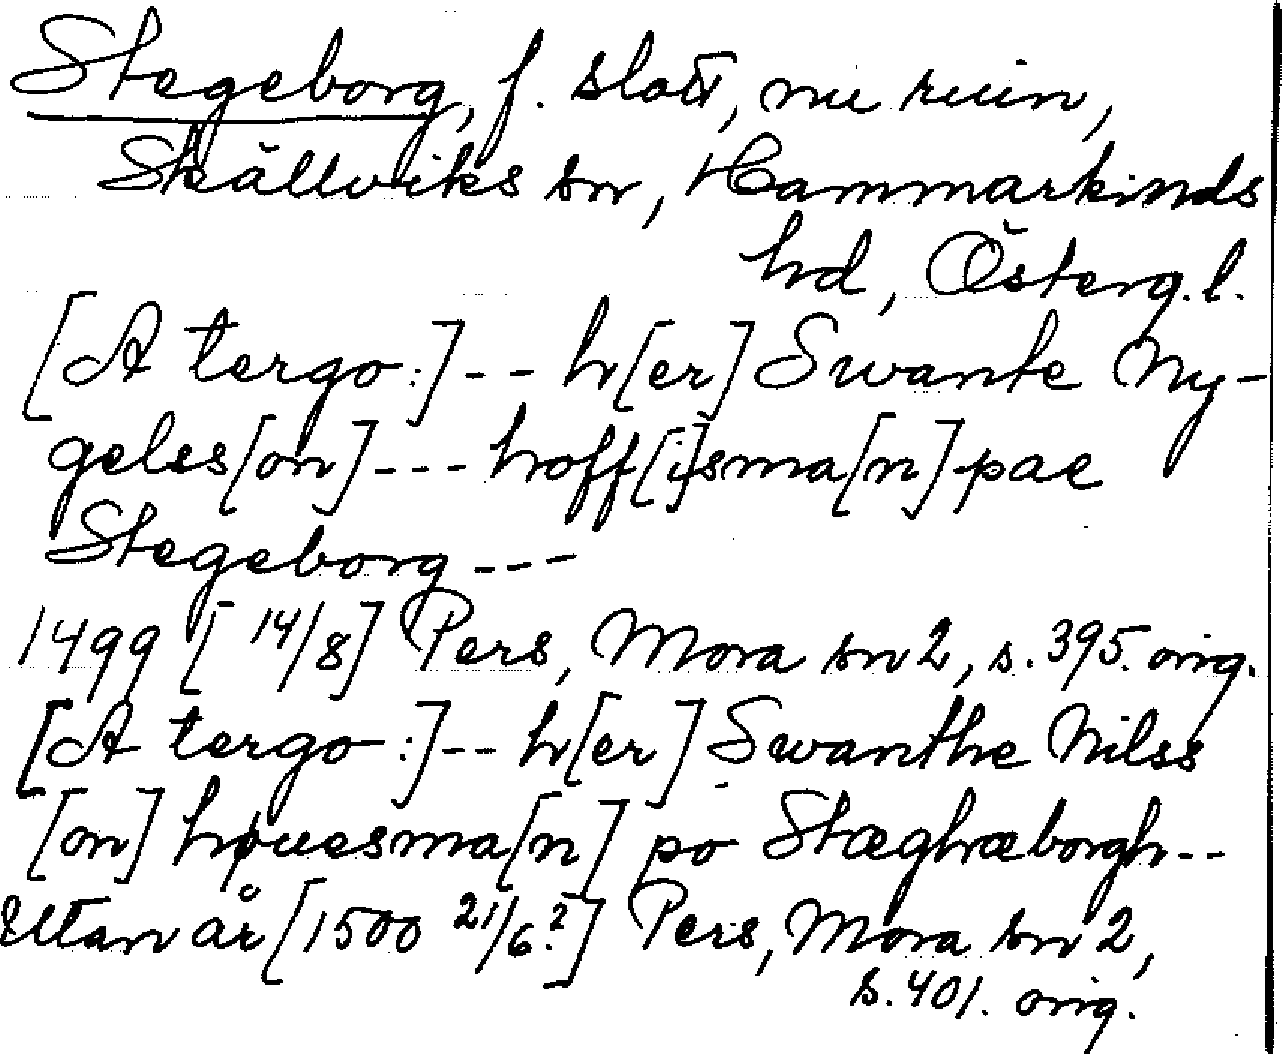 Stegeborg, f. slott, nu ruin,
Skällviks sn, Hammarkinds
hd, Österg.l.
[A tergo:]-- h[er] Swante Ny-
geles[on]--- hoff[i]sma[n] pae
Stegeborg ---
1499 [14/8] Pers, Mora sn 2, s. 395. orig.
[A tergo:]-- h[er] Swanthe Nilss
[on] høuesma[n] po Stæghæborgh--
Utan år [1500 21/6?] Pers, Mora sn 2,
s. 401. orig.